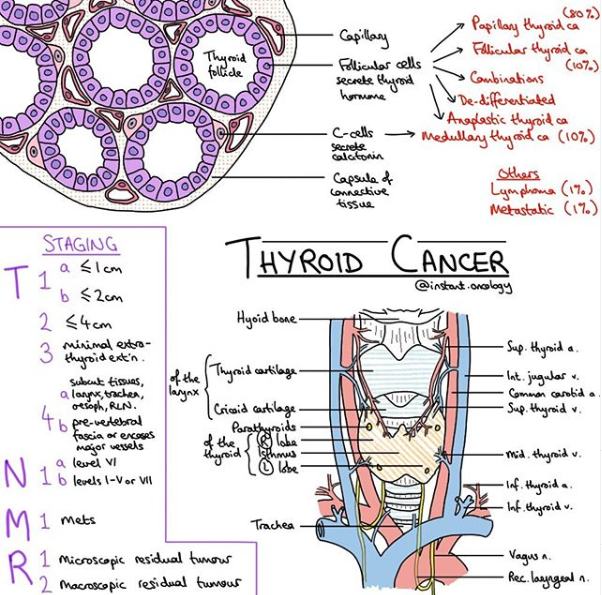 Capillary
Thyroid
follicle
Follicular cells
secrete thyroid
hormone
C-cells
secrete
calcitonin
Capsule of
connective
tissue
(80%)
Papillary thyroid ca
Follicular thyroid ca
(10%)
Combinations
De-differentiated
Anaplastic thyroid ca
Medullary thyroid ca (10%)
Others
Lymphoma (1%)
Metastatic (1%)
STAGING
T 1 a ≤1cm
b ≤2cm
2 ≤4cm
3 minimal extra-
thyroid ext'n.
4 a subcut tissues,
larynx, trachea,
oesoph, RLN.
b pre-vertebral
fascia or encases
major vessels
N 1 a level VI
b levels I-V or VII
M 1 mets
R 1 microscopic residual tumour
2 macroscopic residual tumour
THYROID CANCER
@instant.oncology
Hyoid bone
of the
larynx
Thyroid cartilage
Cricoid cartilage
Parathyroids
of the
thyroid
R lobe
Isthmus
L lobe
Trachea
Sup. thyroid a.
Int. jugular v.
Common carotid a.
Sup. thyroid v.
Mid. thyroid v.
Inf. thyroid a.
Inf. thyroid v.
Vagus n.
Rec. laryngeal n.